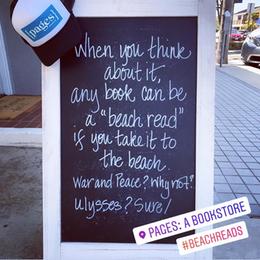 [pages]
When you think
about it,
any book can be
a "beach read"
if you take it to
the beach.
War and Peace? Why not?
Ulysses? Sure!
PAGES: A BOOKSTORE
#BEACHREADS